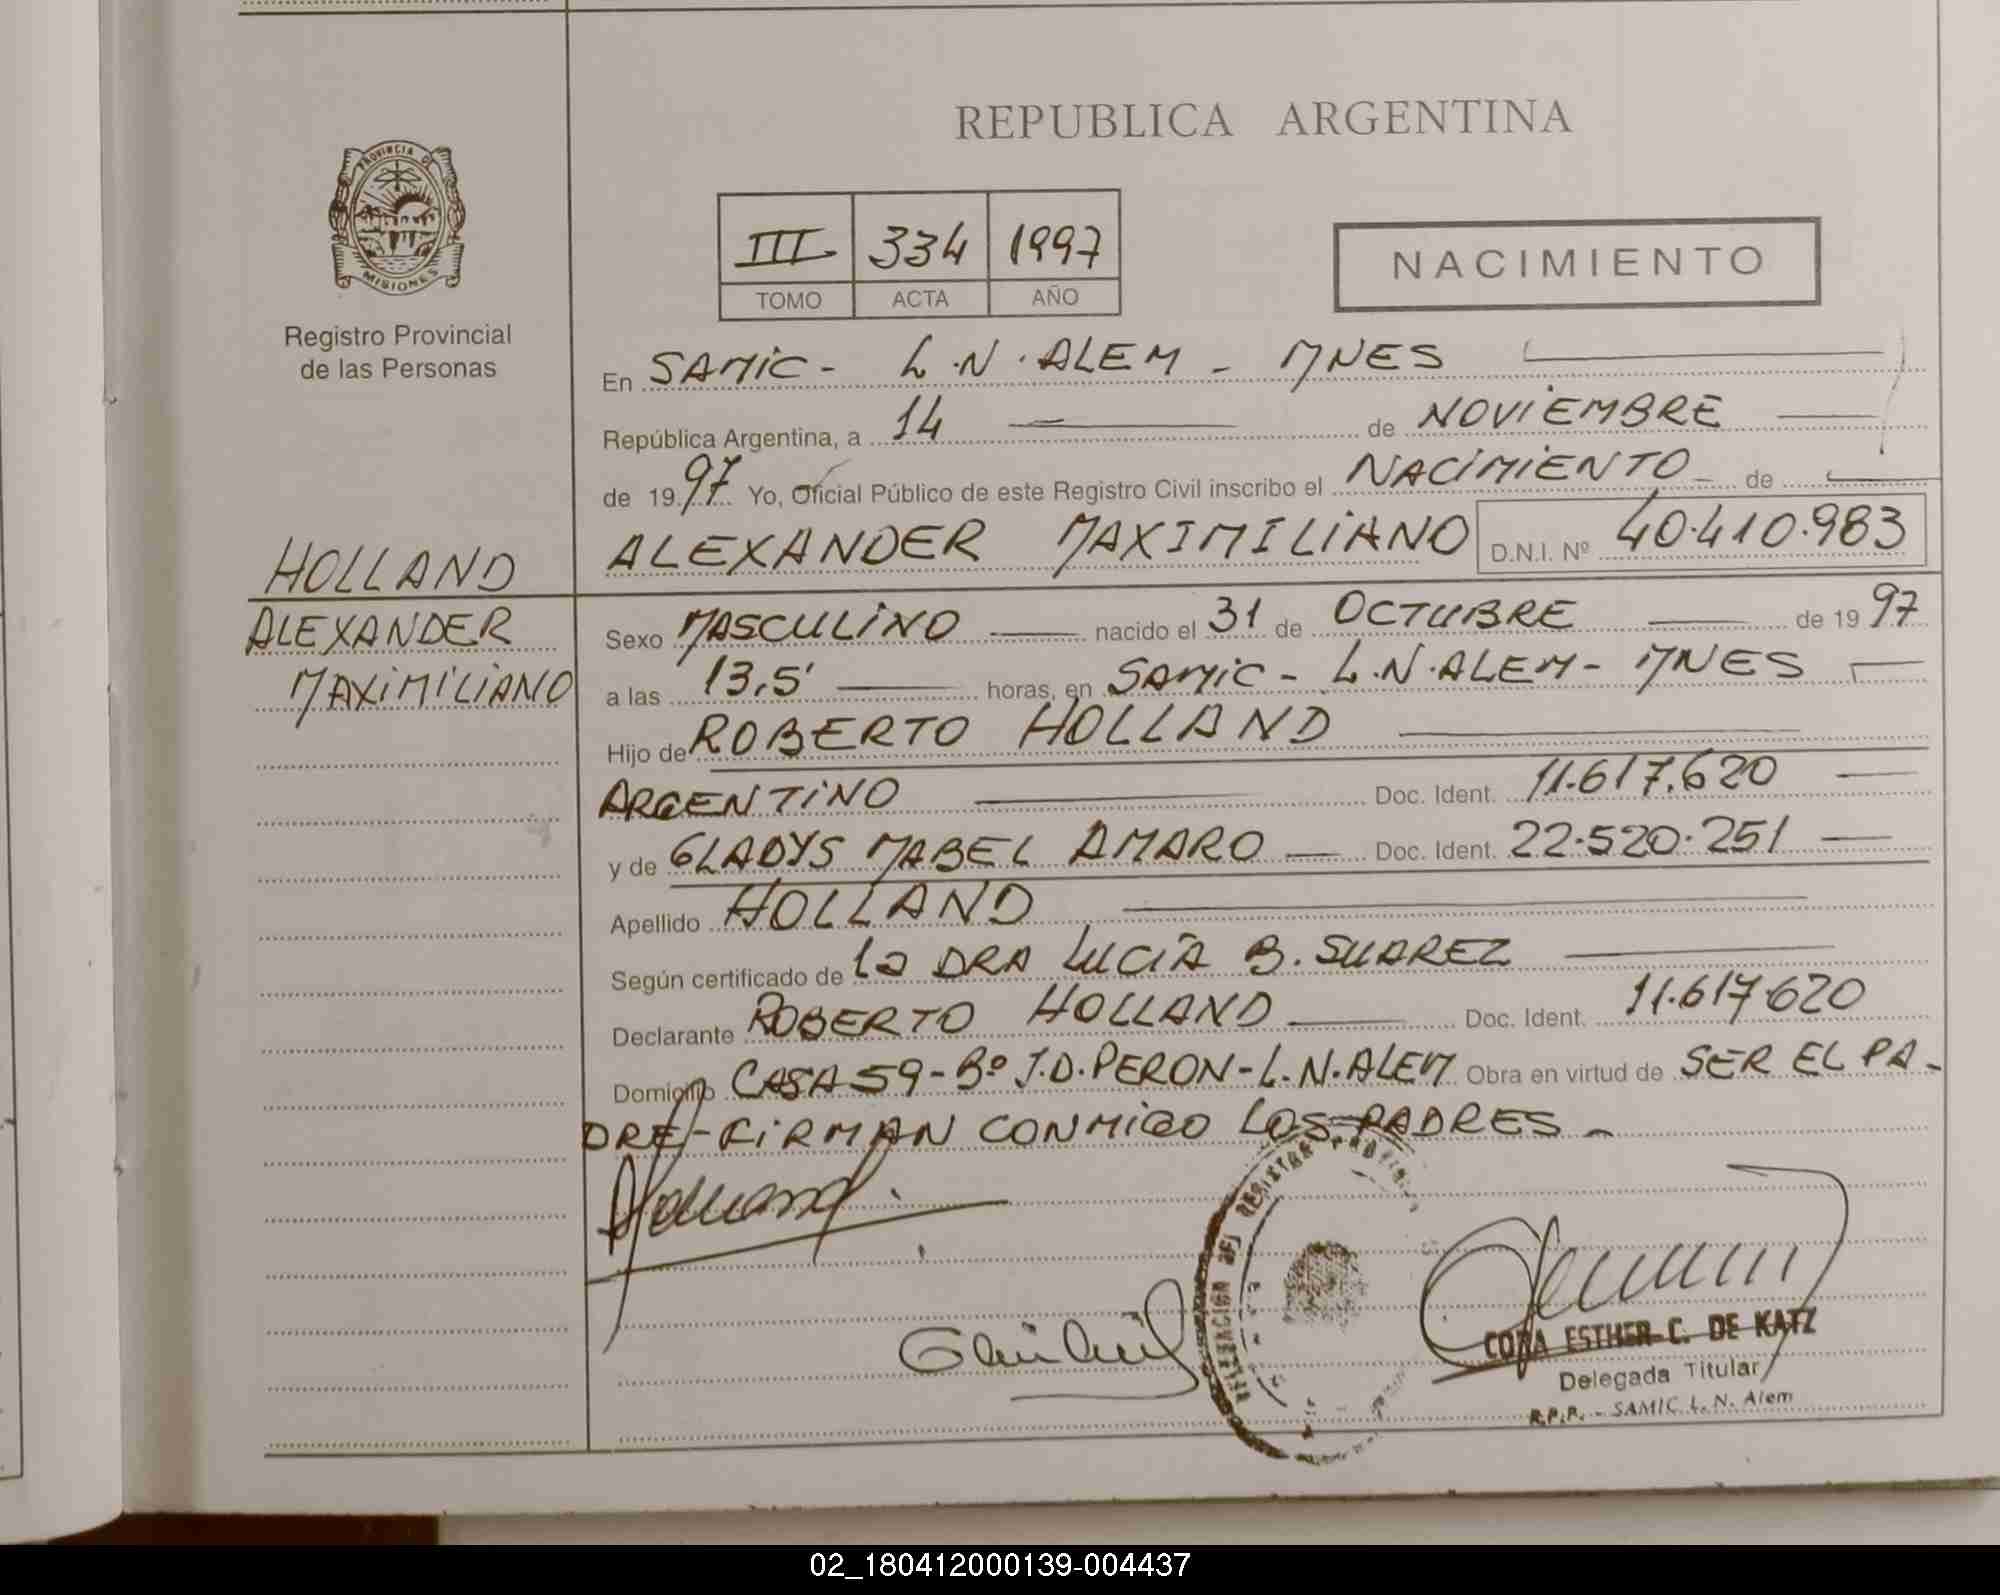 REPUBLICA ARGENTINA
PROVINCIA DE
MISIONES
Registro Provincial
de las Personas
III 334 1997
TOMO ACTA AÑO
NACIMIENTO
En SAMIC - L.N.ALEM - MNES
República Argentina, a 14 de NOVIEMBRE
de 1997 Yo, Oficial Público de este Registro Civil inscribo el NACIMIENTO de
ALEXANDER MAXIMILIANO D.N.I. Nº 40.410.983
HOLLAND
ALEXANDER
MAXIMILIANO
Sexo MASCULINO nacido el 31 de OCTUBRE de 1997
a las 13,5' horas, en SAMIC - L.N.ALEM - MNES
Hijo de ROBERTO HOLLAND
ARGENTINO Doc. Ident. 11.617.620
y de GLADYS MABEL AMARO Doc. Ident. 22.520.251
Apellido HOLLAND
Según certificado de la DRA LUCIA B. SUAREZ
Declarante ROBERTO HOLLAND Doc. Ident. 11.617.620
Domicilio CASA 59 - Bº J.D.PERON - L.N.ALEM Obra en virtud de SER EL PA-
DRE - FIRMAN CONMIGO LOS PADRES -
Holland
CORA ESTHER C. DE KATZ
Delegada Titular
R.P.P. - SAMIC L. N. Alem
02_180412000139-004437